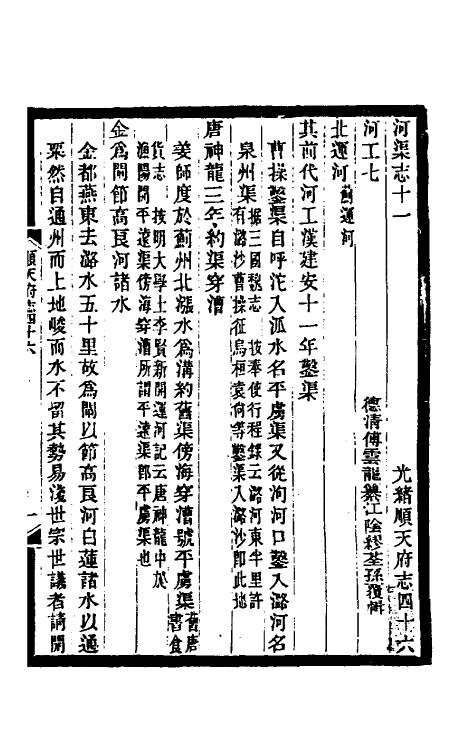 河渠志十一　光緒順天府志四十六
河工七　德清傅雲龍纂江陰繆荃孫覆輯
北運河 薊運河
其前代河工漢建安十一年鑿渠
曹操鑿渠自呼沱入泒水名平虜渠又從泃河口鑿入潞河名
泉州渠 據三國魏志 按奉使行程錄云潞河東半里許
有潞沙曹操征烏桓袁尚等鑿渠入潞沙卽此地
唐神龍三年約渠穿漕
姜師度於薊州北漲水爲溝約舊渠傍海穿漕號平虜渠 舊唐書食
貨志 按明大學士李賢新開運河記云唐神龍中於
漁陽開平遠渠傍海穿漕所謂平遠渠卽平虜渠也
金爲閘節高良河諸水
金都燕東去潞水五十里故爲閘以節高良河白蓮諸水以通
粟然自通州而上地峻而水不留其勢易淺世宗世議者請開
順天府志四十六
一